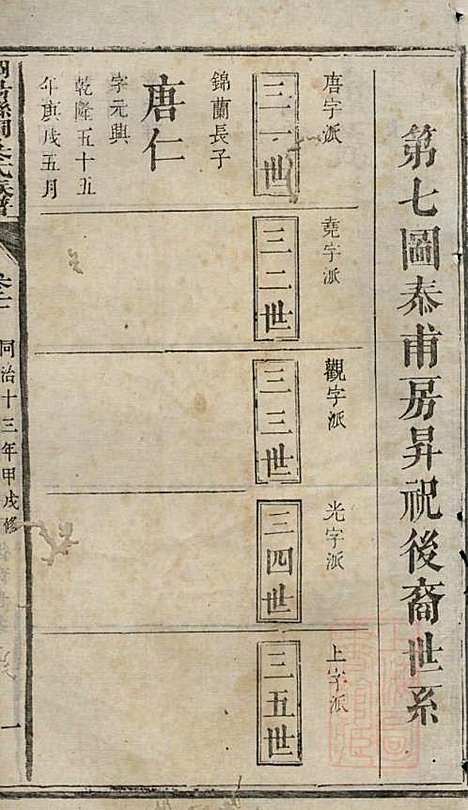 第七圖泰甫房昇祝後裔世系
唐字派
三一世
錦蘭長子
唐仁
字元與
乾隆五十五
年庚戌五月
堯字派
三二世
觀字派
三三世
光字派
三四世
上字派
三五世
同治十三年甲戌修
一